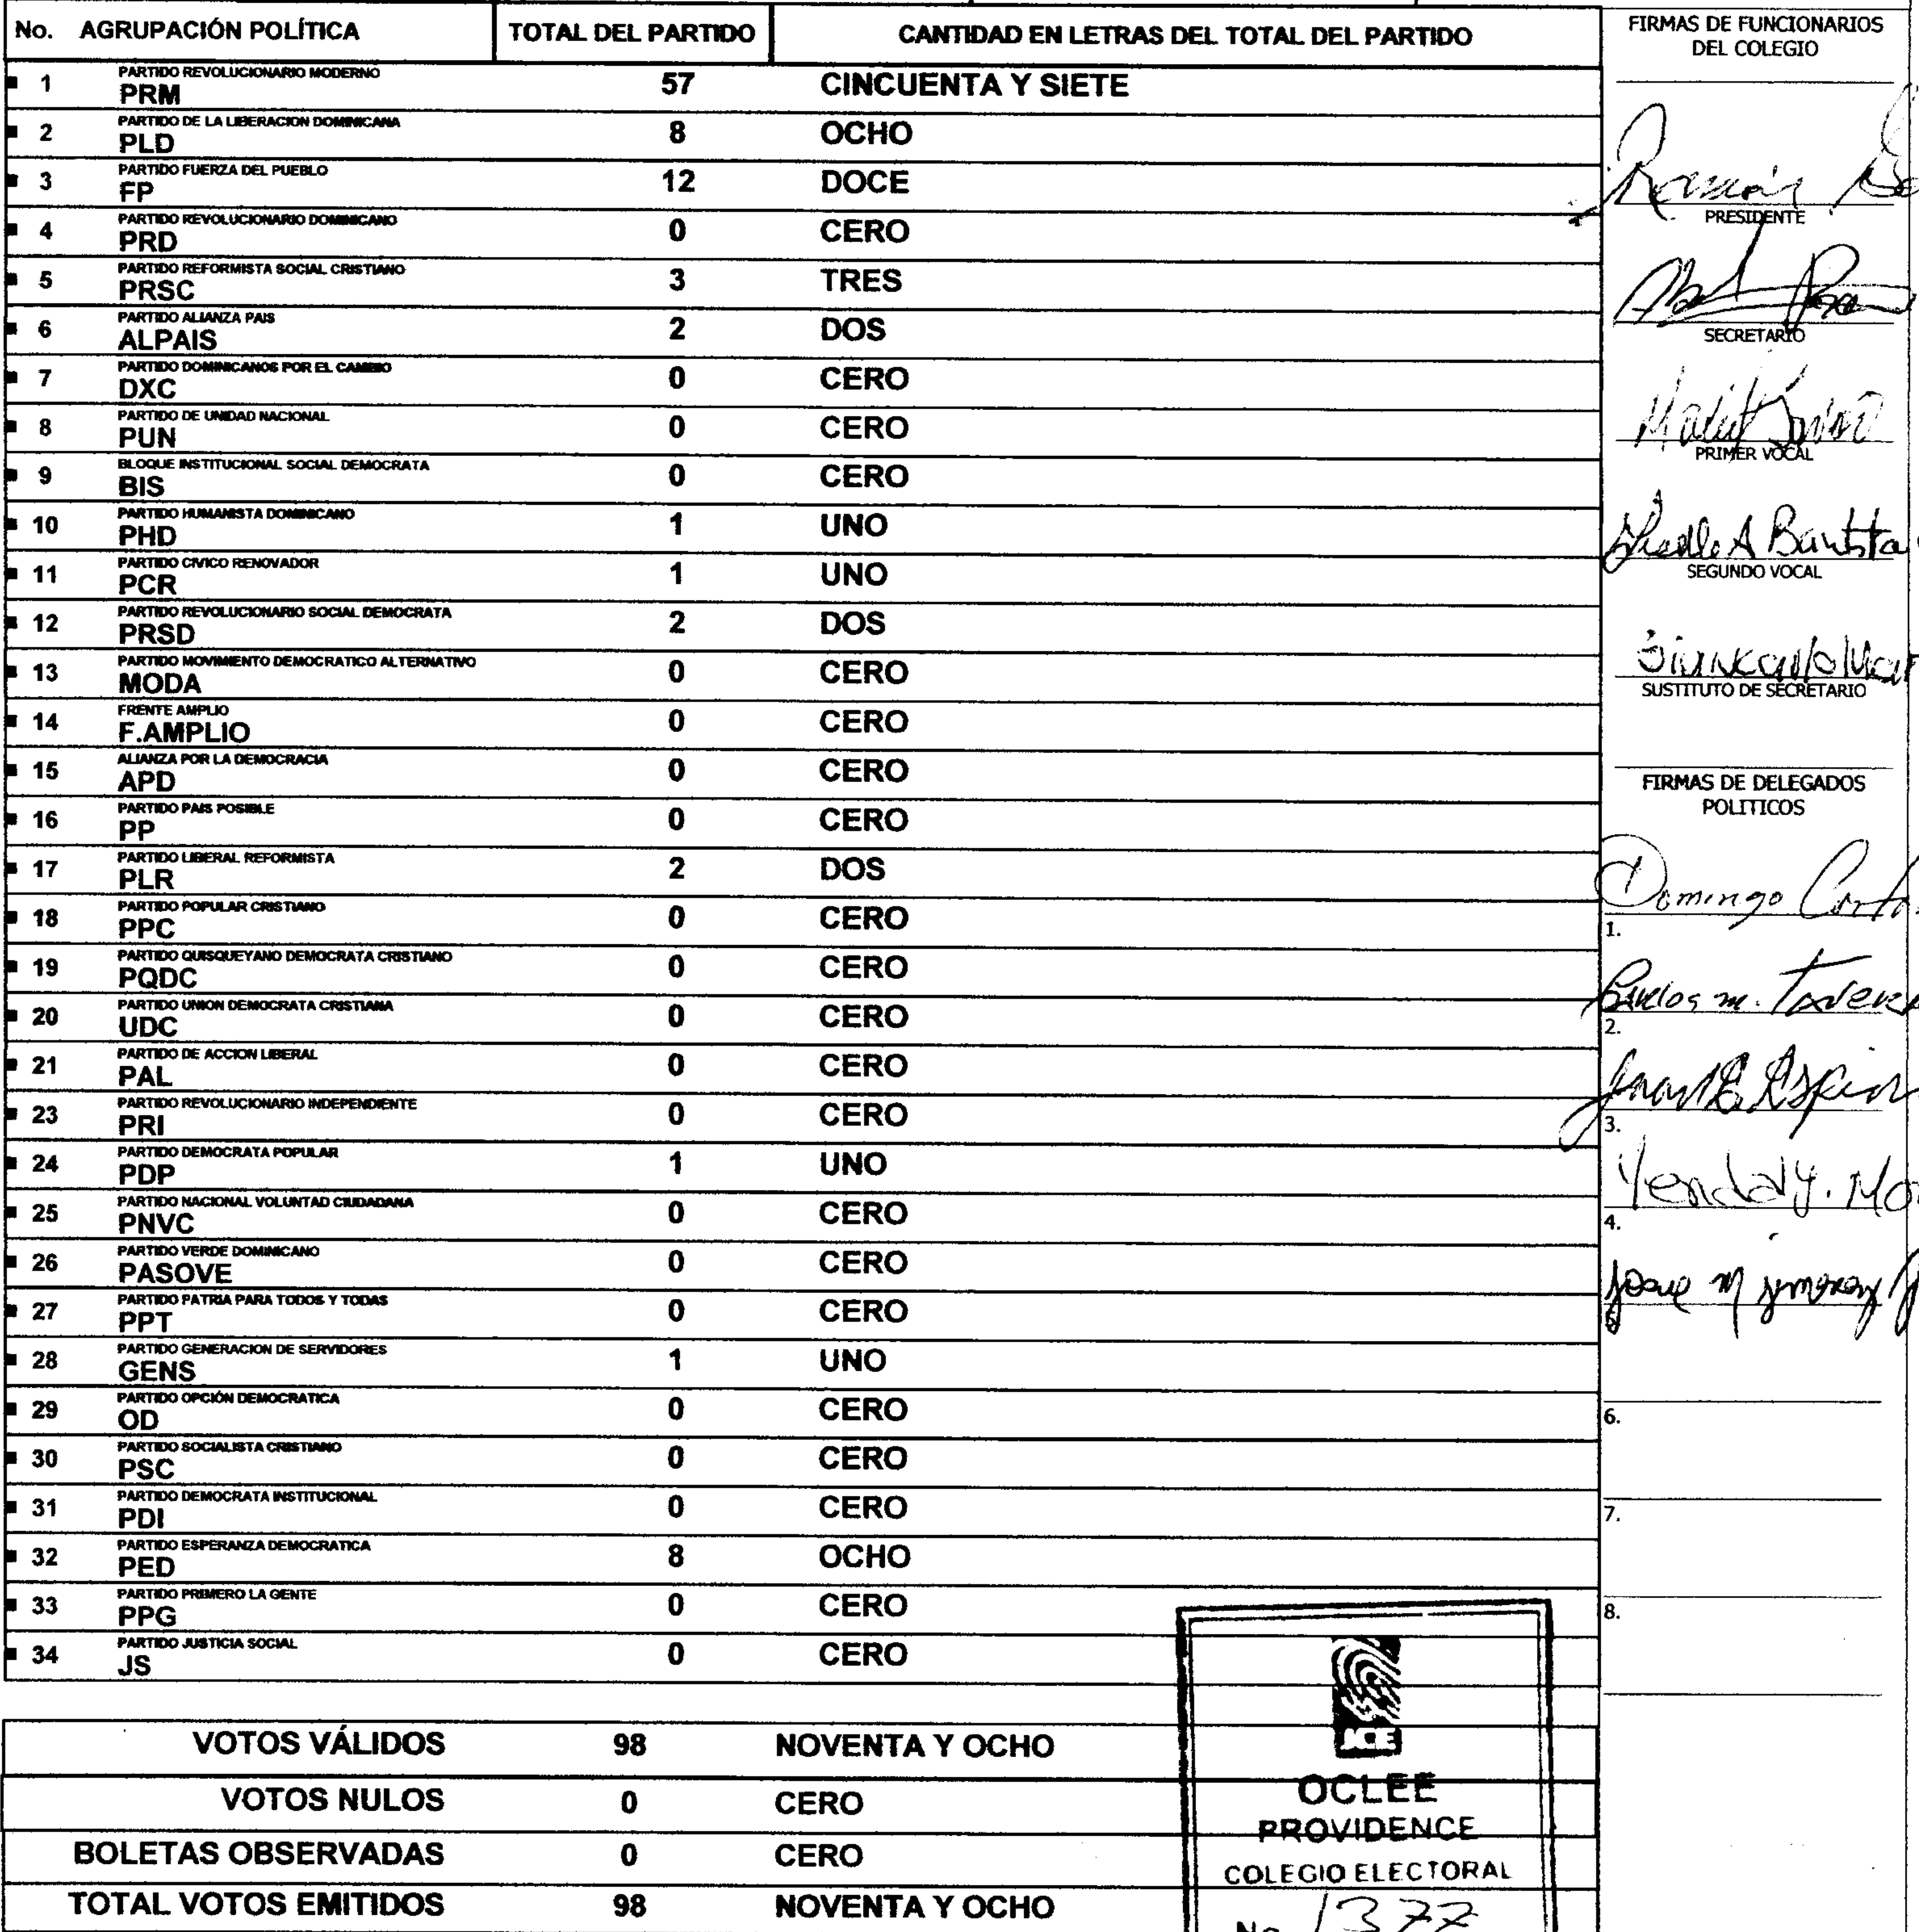 No. AGRUPACIÓN POLÍTICA TOTAL DEL PARTIDO CANTIDAD EN LETRAS DEL TOTAL DEL PARTIDO
1 PARTIDO REVOLUCIONARIO MODERNO
PRM 57 CINCUENTA Y SIETE
2 PARTIDO DE LA LIBERACION DOMINICANA
PLD 8 OCHO
3 PARTIDO FUERZA DEL PUEBLO
FP 12 DOCE
4 PARTIDO REVOLUCIONARIO DOMINICANO
PRD 0 CERO
5 PARTIDO REFORMISTA SOCIAL CRISTIANO
PRSC 3 TRES
6 PARTIDO ALIANZA PAIS
ALPAIS 2 DOS
7 PARTIDO DOMINICANOS POR EL CAMBIO
DXC 0 CERO
8 PARTIDO DE UNIDAD NACIONAL
PUN 0 CERO
9 BLOQUE INSTITUCIONAL SOCIAL DEMOCRATA
BIS 0 CERO
10 PARTIDO HUMANISTA DOMINICANO
PHD 1 UNO
11 PARTIDO CIVICO RENOVADOR
PCR 1 UNO
12 PARTIDO REVOLUCIONARIO SOCIAL DEMOCRATA
PRSD 2 DOS
13 PARTIDO MOVIMIENTO DEMOCRATICO ALTERNATIVO
MODA 0 CERO
14 FRENTE AMPLIO
F.AMPLIO 0 CERO
15 ALIANZA POR LA DEMOCRACIA
APD 0 CERO
16 PARTIDO PAIS POSIBLE
PP 0 CERO
17 PARTIDO LIBERAL REFORMISTA
PLR 2 DOS
18 PARTIDO POPULAR CRISTIANO
PPC 0 CERO
19 PARTIDO QUISQUEYANO DEMOCRATA CRISTIANO
PQDC 0 CERO
20 PARTIDO UNION DEMOCRATA CRISTIANA
UDC 0 CERO
21 PARTIDO DE ACCION LIBERAL
PAL 0 CERO
23 PARTIDO REVOLUCIONARIO INDEPENDIENTE
PRI 0 CERO
24 PARTIDO DEMOCRATA POPULAR
PDP 1 UNO
25 PARTIDO NACIONAL VOLUNTAD CIUDADANA
PNVC 0 CERO
26 PARTIDO VERDE DOMINICANO
PASOVE 0 CERO
27 PARTIDO PATRIA PARA TODOS Y TODAS
PPT 0 CERO
28 PARTIDO GENERACION DE SERVIDORES
GENS 1 UNO
29 PARTIDO OPCIÓN DEMOCRATICA
OD 0 CERO
30 PARTIDO SOCIALISTA CRISTIANO
PSC 0 CERO
31 PARTIDO DEMOCRATA INSTITUCIONAL
PDI 0 CERO
32 PARTIDO ESPERANZA DEMOCRATICA
PED 8 OCHO
33 PARTIDO PRIMERO LA GENTE
PPG 0 CERO
34 PARTIDO JUSTICIA SOCIAL
JS 0 CERO
VOTOS VÁLIDOS 98 NOVENTA Y OCHO
VOTOS NULOS 0 CERO
BOLETAS OBSERVADAS 0 CERO
TOTAL VOTOS EMITIDOS 98 NOVENTA Y OCHO
JCE
OCLEE
PROVIDENCE
COLEGIO ELECTORAL
No. 1377
FIRMAS DE FUNCIONARIOS
DEL COLEGIO
Ramón
PRESIDENTE
SECRETARIO
PRIMER VOCAL
A Bautista
SEGUNDO VOCAL
SUSTITUTO DE SECRETARIO
FIRMAS DE DELEGADOS
POLITICOS
Domingo
1.
m.
2.
3.
4.
M
5.
6.
7.
8.